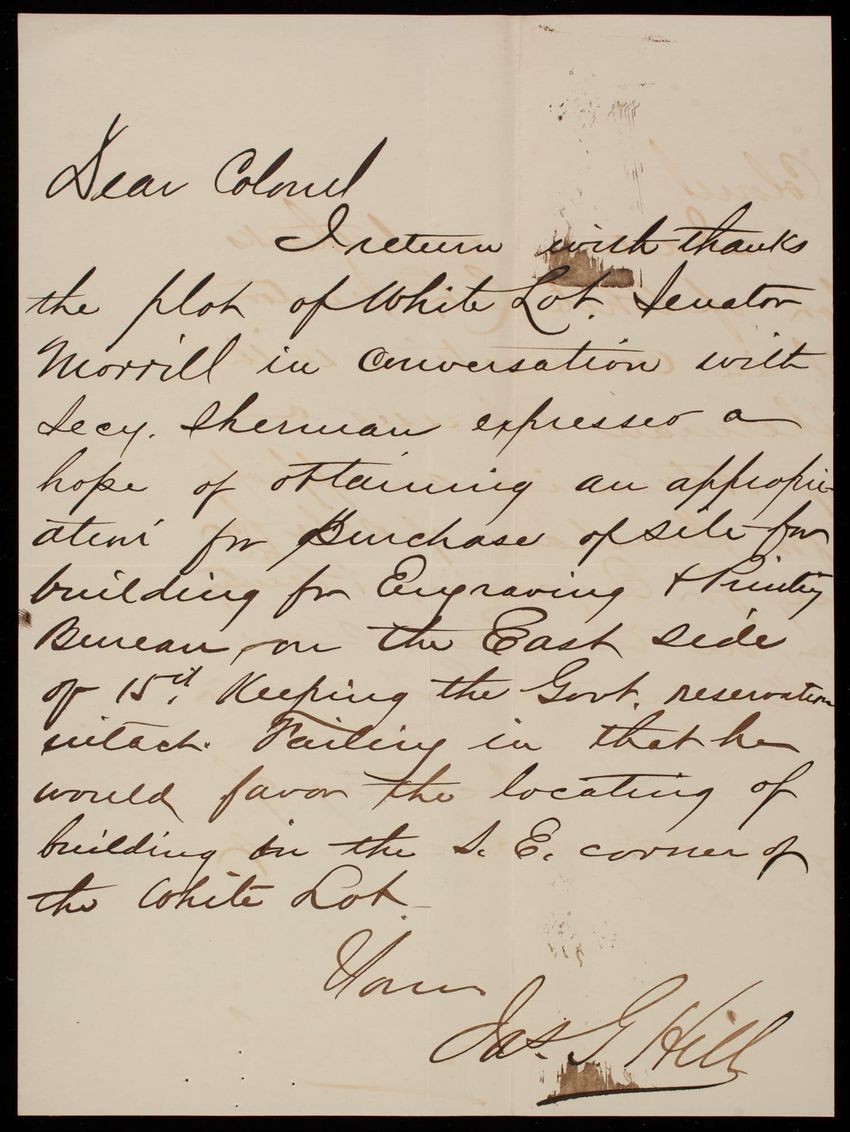 Dear Colonel
I return with thanks
the plot of White Lot. Senator
Morrill in conversation with
Secy. Sherman expressed a
hope of obtaining an appropri-
ation for Purchase of site for
building for Engraving & Printing
Bureau, on the East side
of 15th, Keeping the Govt. reservation
intact. Failing in that he
would favor the locating of
building in the S. E. corner of
the White Lot.
Yours
Jas. G Hill